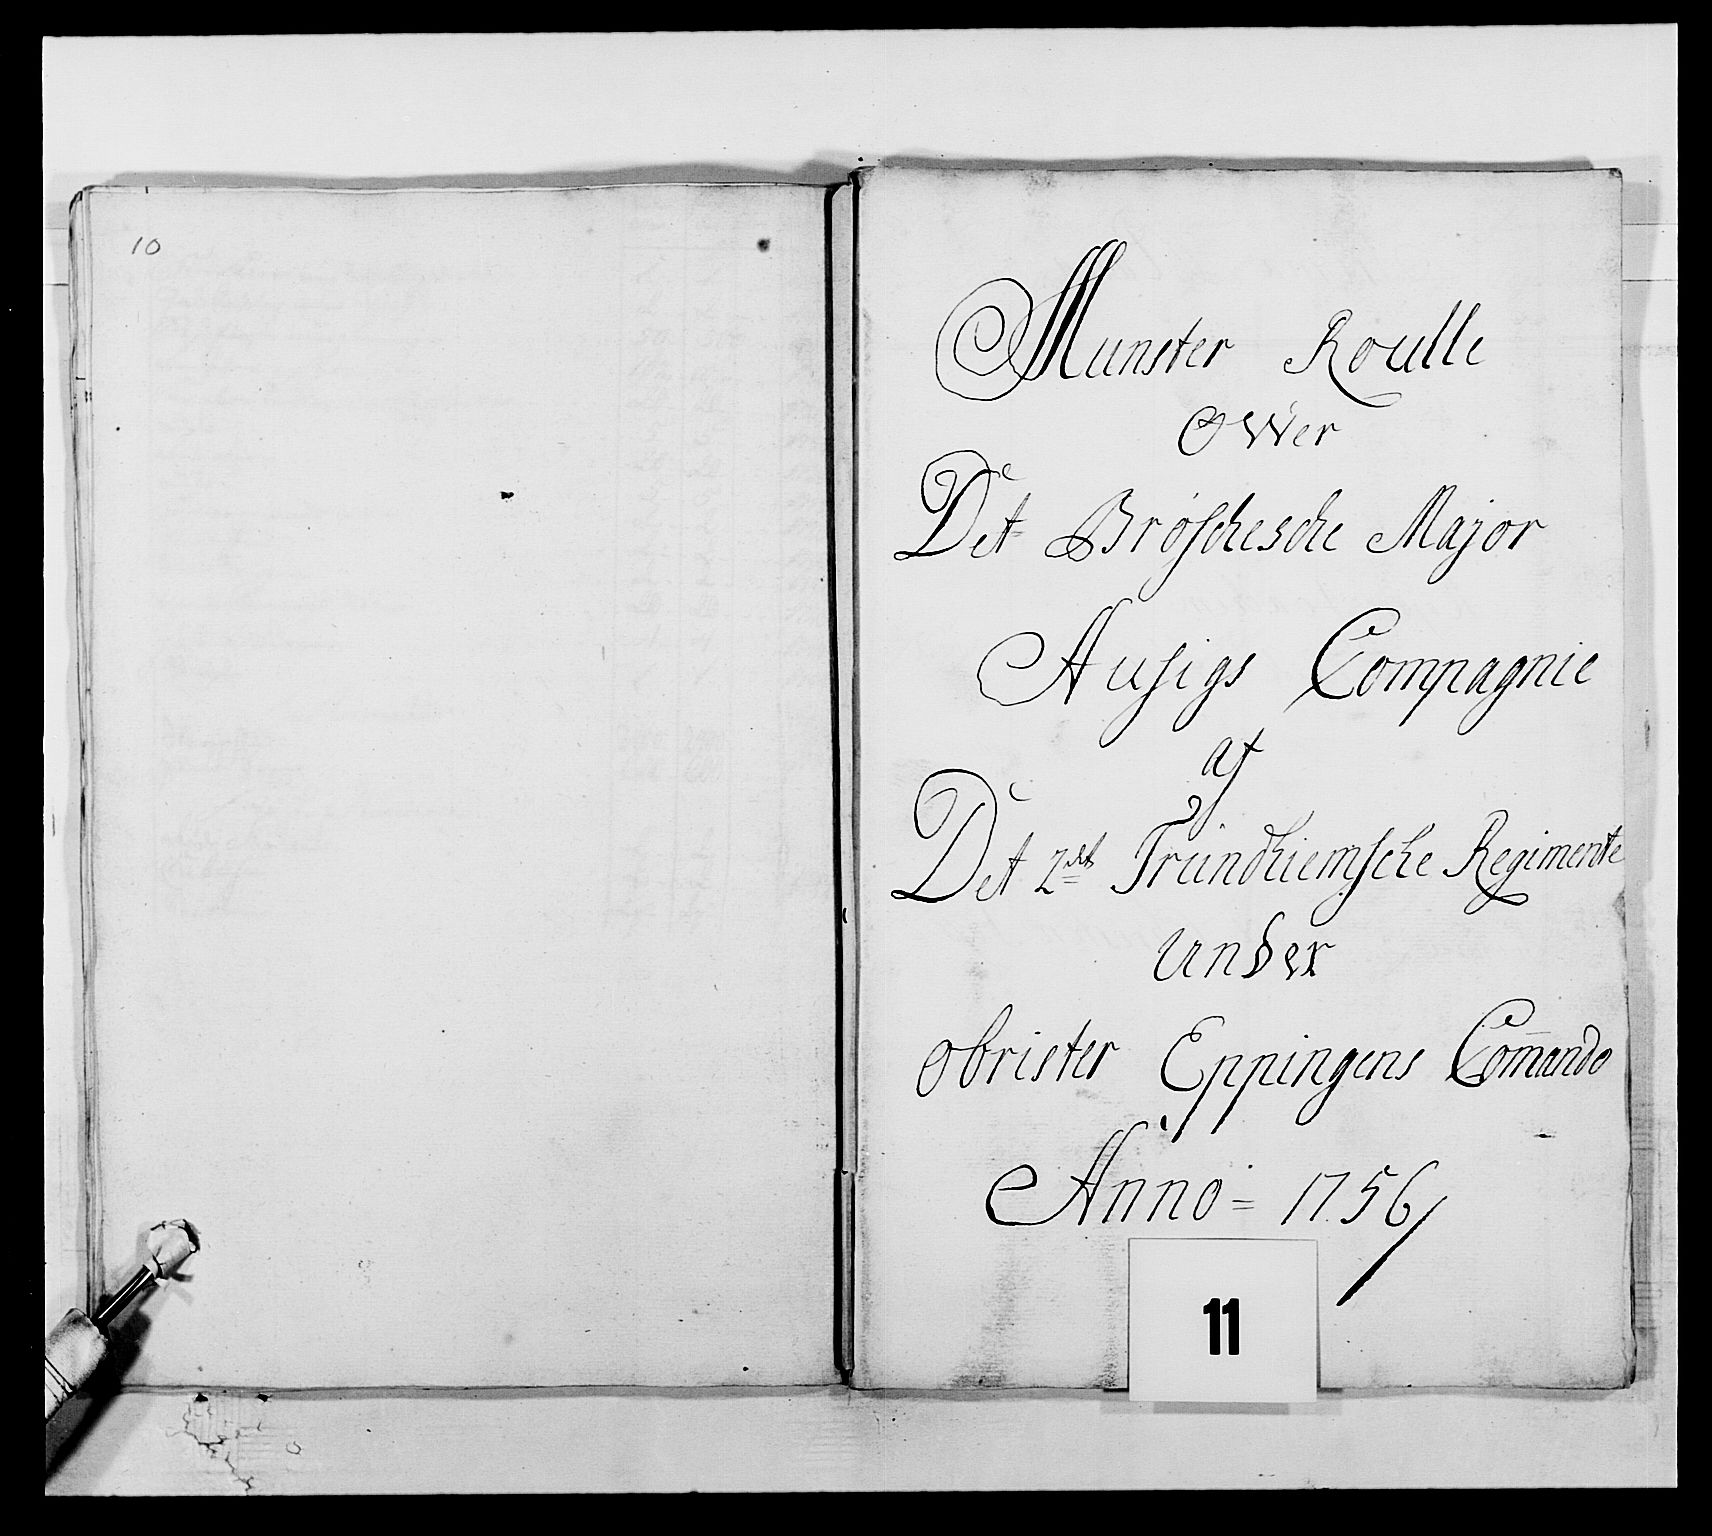 10
Munster Roulle
Ower
Det Bröschesche Major
Ausigs Compagnie
af
Det 2det Trundhiemsche Regimente
under
obrister Eppingens Comando
Anno = 1756
11